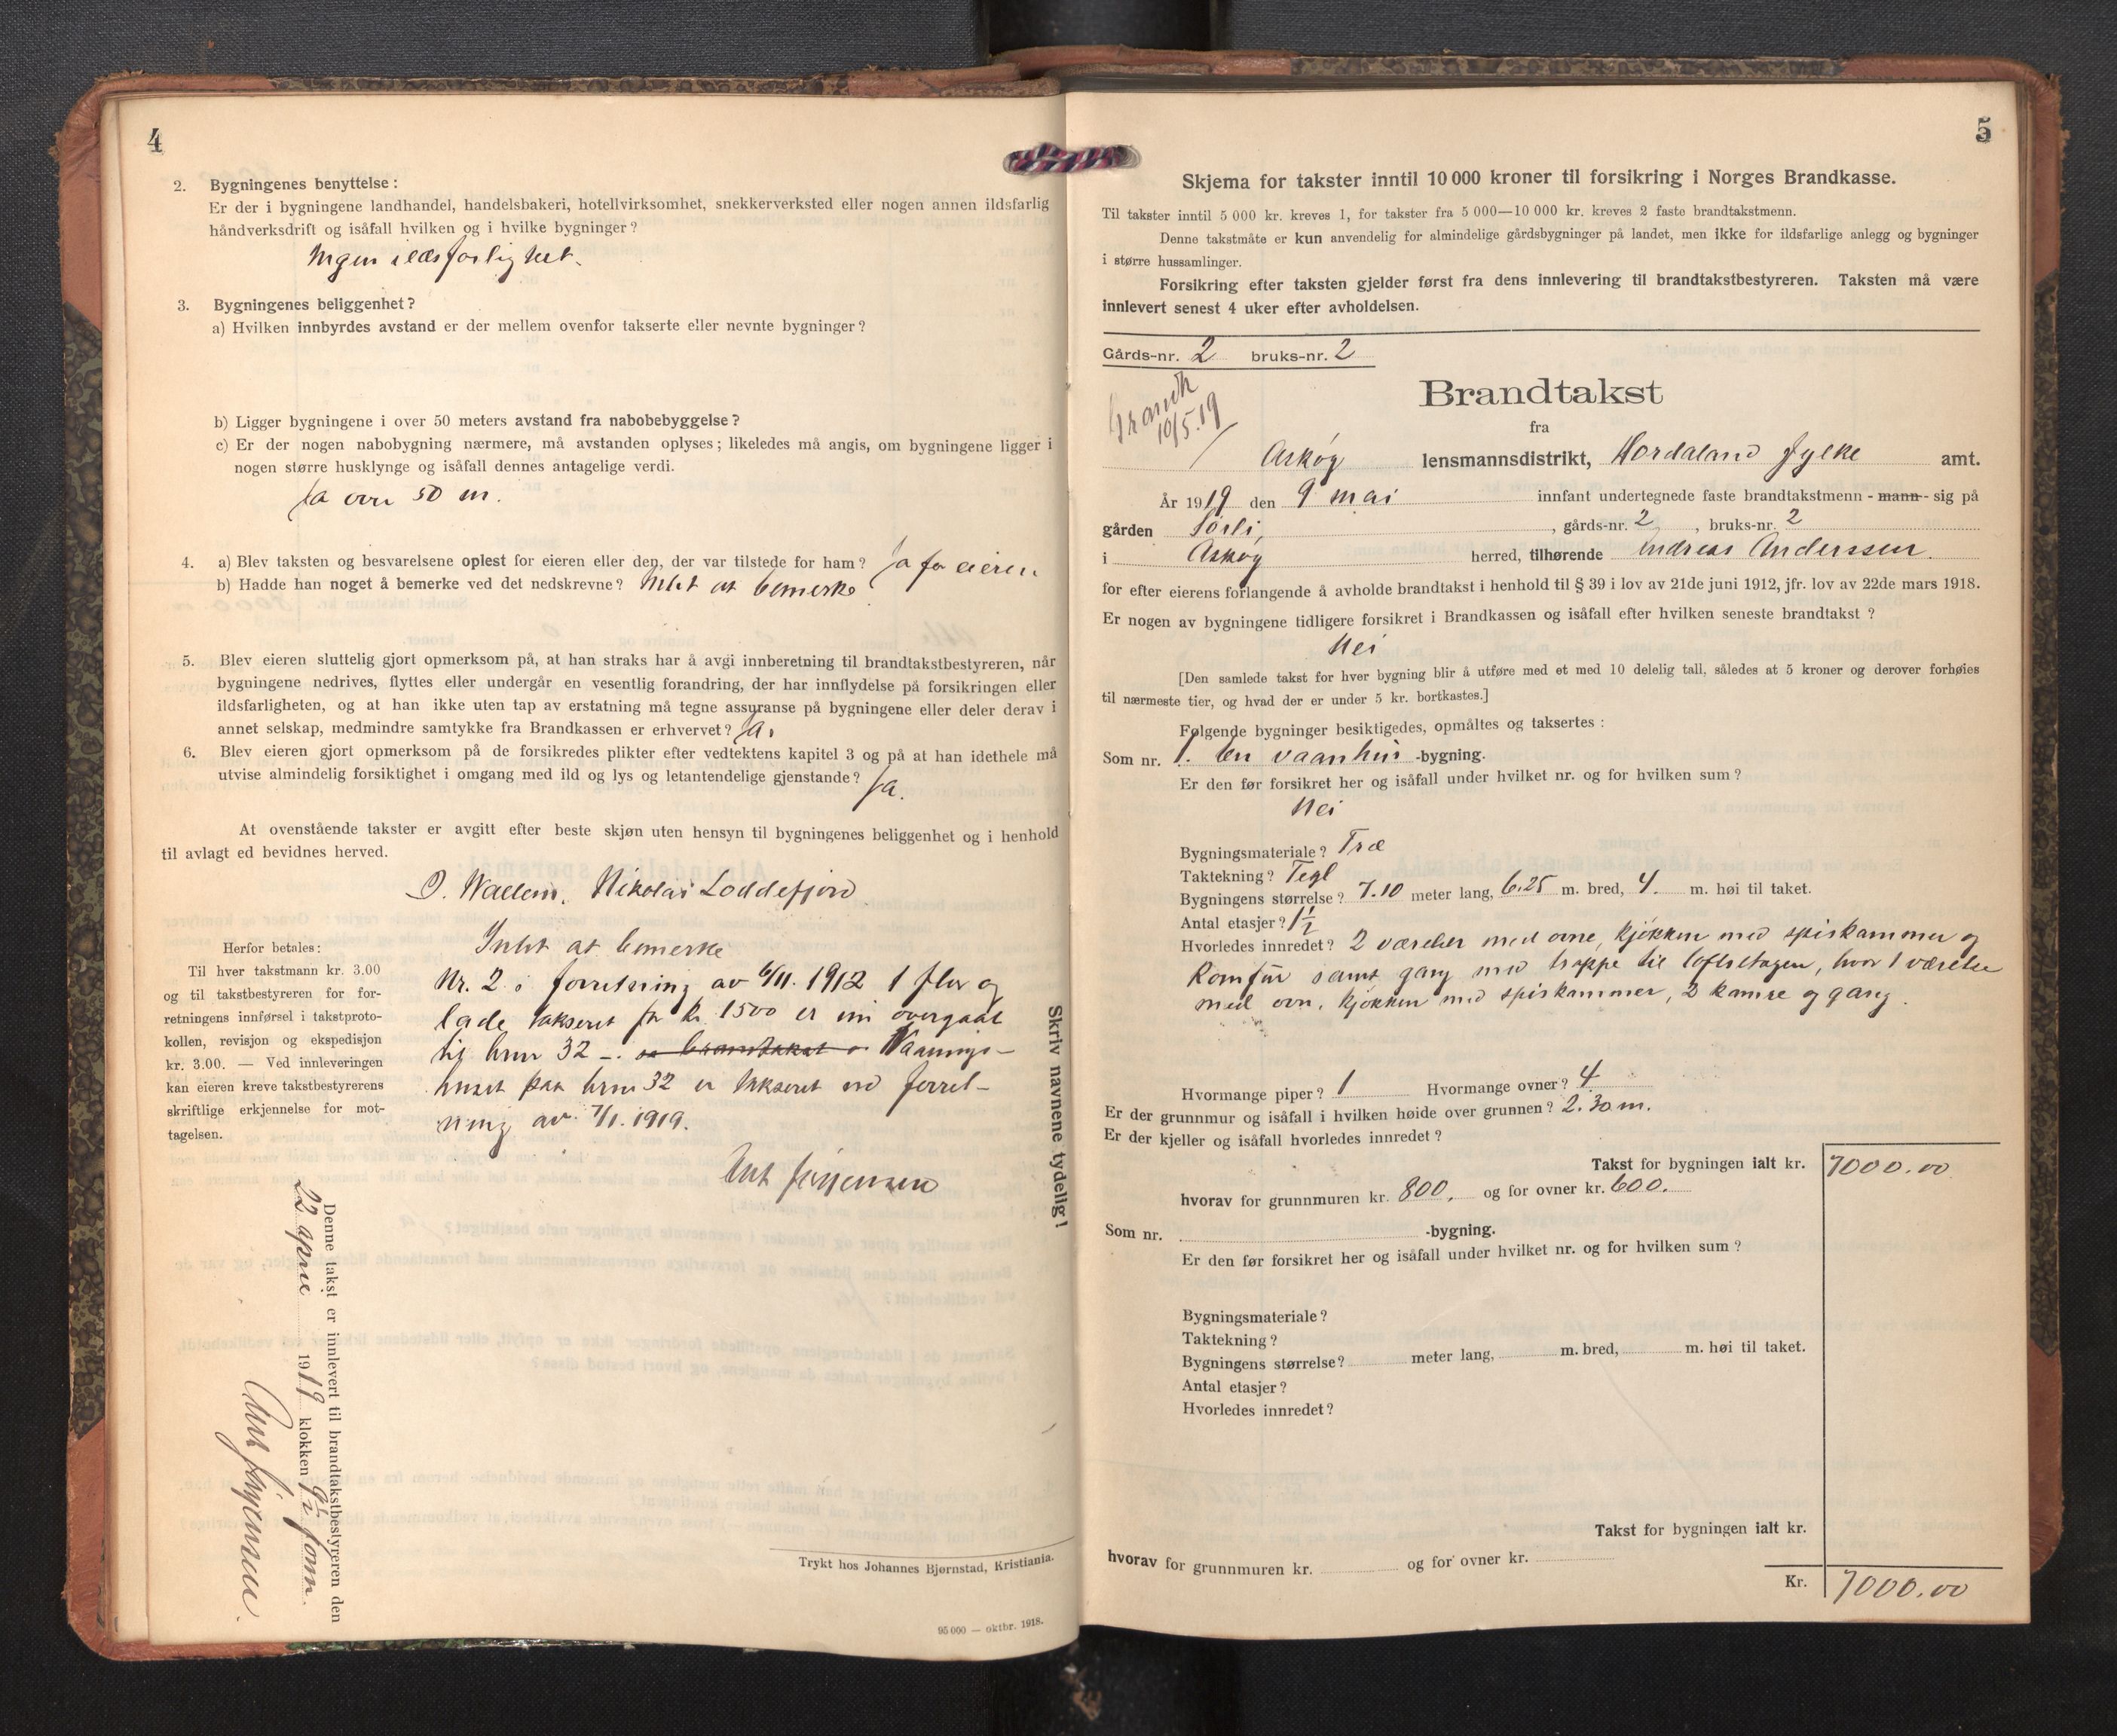 4
2. Bygningenes benyttelse:
Er der i bygningene landhandel, handelsbakeri, hotellvirksomhet, snekkerverksted eller nogen annen ildsfarlig
håndverksdrift og isåfall hvilken og i hvilke bygninger?
Ingen ildsfarlighet.
3. Bygningenes beliggenhet?
a) Hvilken innbyrdes avstand er der mellem ovenfor takserte eller nevnte bygninger?
b) Ligger bygningene i over 50 meters avstand fra nabobebyggelse?
c) Er der nogen nabobygning nærmere, må avstanden oplyses; likeledes må angis, om bygningene ligger i
nogen større husklynge og isåfall dennes antagelige verdi.
Ja over 50 m.
4. a) Blev taksten og besvarelsene oplest for eieren eller den, der var tilstede for ham? Ja for eieren
b) Hadde han noget å bemerke ved det nedskrevne? Intet at bemerke
5. Blev eieren sluttelig gjort opmerksom på, at han straks har å avgi innberetning til brandtakstbestyreren, når
bygningene nedrives, flyttes eller undergår en vesentlig forandring, der har innflydelse på forsikringen eller
ildsfarligheten, og at han ikke uten tap av erstatning må tegne assuranse på bygningene eller deler derav i
annet selskap, medmindre samtykke fra Brandkassen er erhvervet? Ja.
6. Blev eieren gjort opmerksom på de forsikredes plikter efter vedtektens kapitel 3 og på at han idethele må
utvise almindelig forsiktighet i omgang med ild og lys og letantendelige gjenstande? Ja.
At ovenstående takster er avgitt efter beste skjøn uten hensyn til bygningenes beliggenhet og i henhold
til avlagt ed bevidnes herved.
Nikolai Loddefjord
Herfor betales:
Til hver takstmann kr. 3.00
og til takstbestyreren for for-
retningens innførsel i takstproto-
kollen, revisjon og ekspedisjon
kr. 3.00. — Ved innleveringen
kan eieren kreve takstbestyrerens
skriftlige erkjennelse for mot-
tagelsen.
Intet at bemerke
Nr. 2 i forretning av 6/11. 1912 1 flor og
lade takseret for kr. 1500 er nu overgaat
til brnr 32 -. Vaanings-
huset paa brnr 32 er takseret ved forret-
ning av 7/1. 1919.
Skriv navnene tydelig!
Denne takst er innlevert til brandtakstbestyreren den
22 april 1919 klokken 9½ form.
Trykt hos Johannes Bjørnstad, Kristiania.
95 000 — oktbr. 1918.
5
Skjema for takster inntil 10 000 kroner til forsikring i Norges Brandkasse.
Til takster inntil 5 000 kr. kreves 1, for takster fra 5 000—10 000 kr. kreves 2 faste brandtakstmenn.
Denne takstmåte er kun anvendelig for almindelige gårdsbygninger på landet, men ikke for ildsfarlige anlegg og bygninger
i større hussamlinger.
Forsikring efter taksten gjelder først fra dens innlevering til brandtakstbestyreren. Taksten må være
innlevert senest 4 uker efter avholdelsen.
Gårds-nr. 2 bruks-nr. 2
10/5.19
Brandtakst
fra
Askøy lensmannsdistrikt, Hordaland fylke amt.
År 1919 den 9 mai innfant undertegnede faste brandtakstmenn - mann - sig på
gården Sørli, gårds-nr. 2, bruks-nr. 2
i Askøy herred, tilhørende Andreas Anderssen.
for efter eierens forlangende å avholde brandtakst i henhold til § 39 i lov av 21de juni 1912, jfr. lov av 22de mars 1918.
Er nogen av bygningene tidligere forsikret i Brandkassen og isåfall efter hvilken seneste brandtakst?
Nei
[Den samlede takst for hver bygning blir å utføre med et med 10 delelig tall, således at 5 kroner og derover forhøies
til nærmeste tier, og hvad der er under 5 kr. bortkastes.]
Følgende bygninger besiktigedes, opmåltes og taksertes:
Som nr. 1. en vaanhus -bygning.
Er den før forsikret her og isåfall under hvilket nr. og for hvilken sum?
Nei
Bygningsmateriale? Træ
Taktekning? Tegl
Bygningens størrelse? 7.10 meter lang, 6.25 m. bred, 4. m. høi til taket.
Antal etasjer? 1½
Hvorledes innredet? 2 værelser med ovne, kjøkken med spiskammer og
Komfur samt gang med trappe til loftsetagen, hvor 1 værelse
med ovn, kjøkken med spiskammer, 2 kamre og gang.
Hvormange piper? 1 Hvormange ovner? 4
Er der grunnmur og isåfall i hvilken høide over grunnen? 2.30 m.
Er der kjeller og isåfall hvorledes innredet?
Takst for bygningen ialt kr. 7000.00
hvorav for grunnmuren kr. 800. og for ovner kr. 600.
Som nr. -bygning.
Er den før forsikret her og isåfall under hvilket nr. og for hvilken sum?
Bygningsmateriale?
Taktekning?
Bygningens størrelse? meter lang, m. bred, m. høi til taket.
Antal etasjer?
Hvorledes innredet?
Takst for bygningen ialt kr.
hvorav for grunnmuren kr. og for ovner kr.
Kr. 7000.00